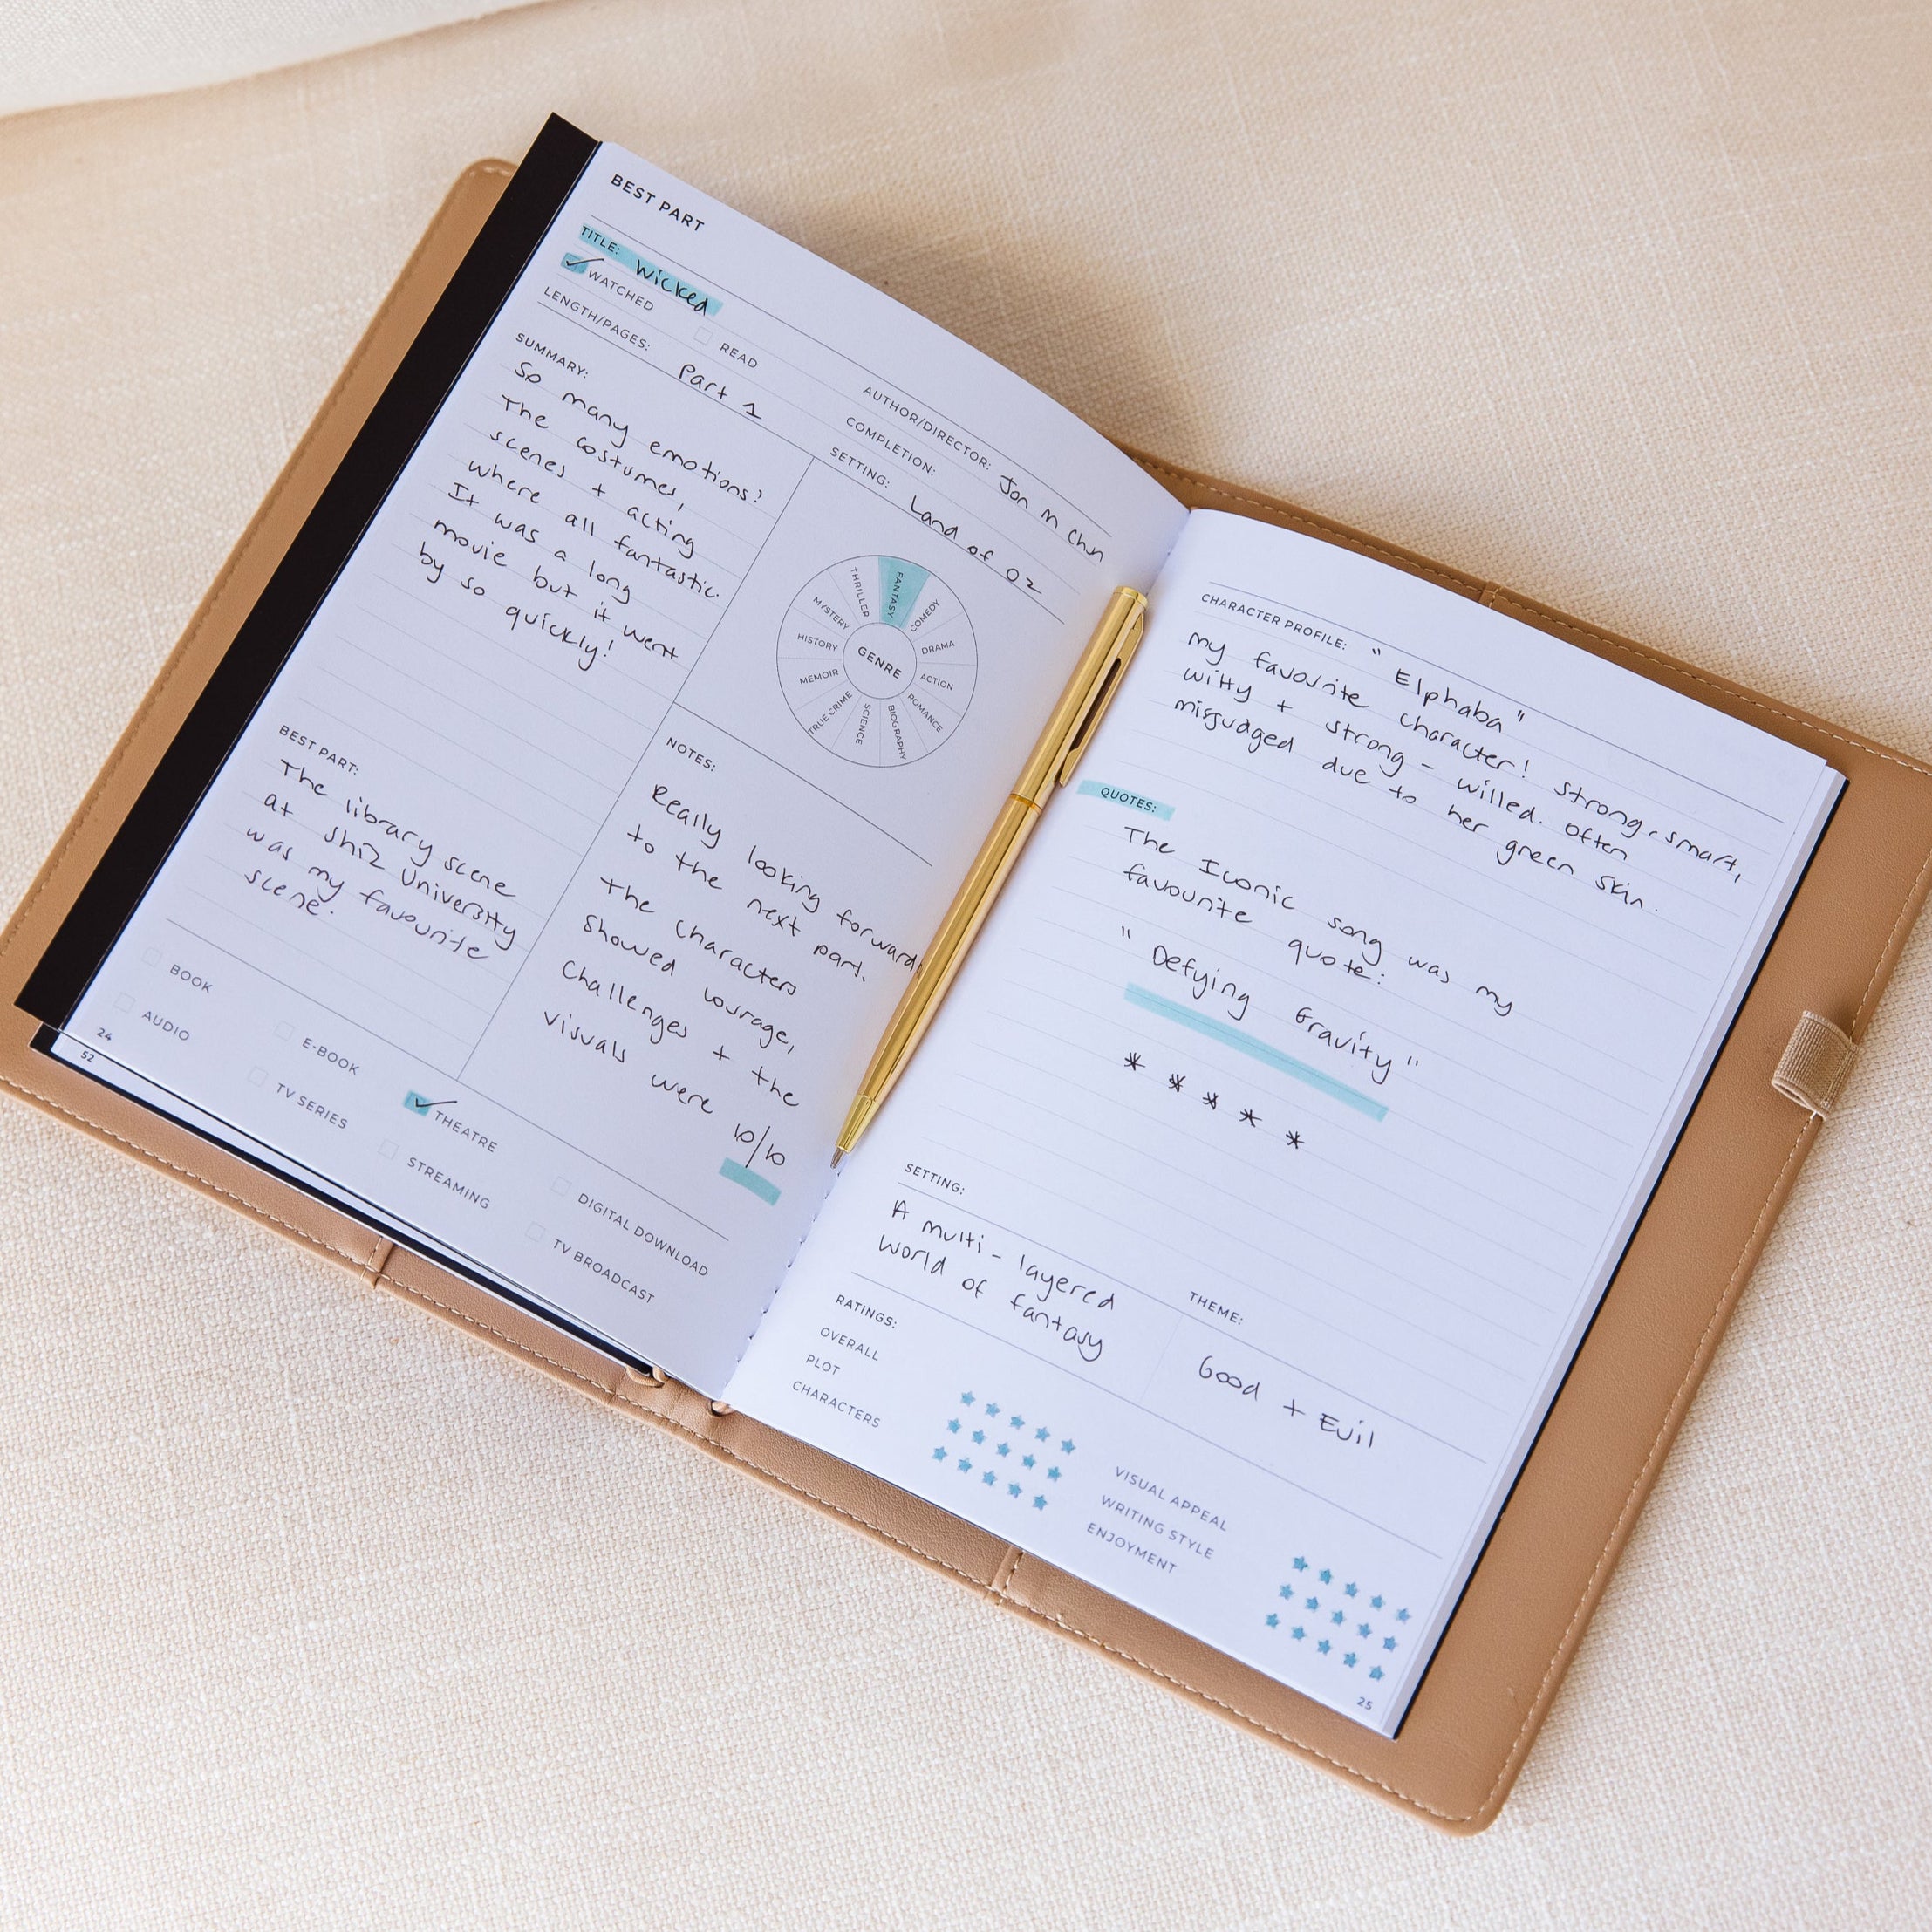 BEST PART
TITLE: Wicked
WATCHED
READ
AUTHOR/DIRECTOR: Jon M Chu
LENGTH/PAGES: Part 1
COMPLETION:
SETTING: Land of Oz
SUMMARY:
So many emotions!
The costumes,
scenes + acting
where all fantastic.
It was a long
movie but it went
by so quickly!
GENRE
FANTASY
COMEDY
DRAMA
ACTION
ROMANCE
BIOGRAPHY
SCIENCE
TRUE CRIME
MEMOIR
HISTORY
MYSTERY
THRILLER
BEST PART:
The library scene
at Shiz University
was my favourite
scene.
NOTES:
Really looking forward
to the next part.
The characters
showed courage,
Challenges + the
visuals were 10/10
BOOK
AUDIO
E-BOOK
TV SERIES
THEATRE
STREAMING
DIGITAL DOWNLOAD
TV BROADCAST
24
52
CHARACTER PROFILE: "Elphaba"
my favourite character! strong, smart,
witty + strong-willed. often
misjudged due to her green skin.
QUOTES:
The Iconic song was my
favourite quote:
"Defying Gravity"
* * * * *
SETTING:
A multi-layered
world of fantasy
THEME:
Good + Evil
RATINGS:
OVERALL ★★★★★
PLOT ★★★★★
CHARACTERS ★★★★★
VISUAL APPEAL ★★★★★
WRITING STYLE ★★★★★
ENJOYMENT ★★★★★
25